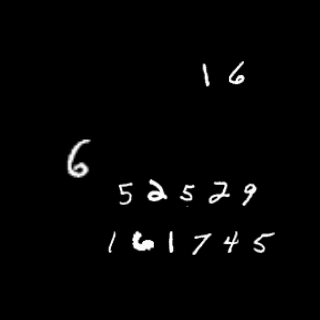 16
6
52529
161745